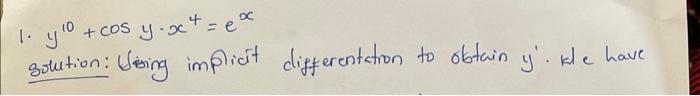 1. y¹⁰ + cos y · x⁴ = eˣ
Solution: Using implicit differentation to obtain y'. We have